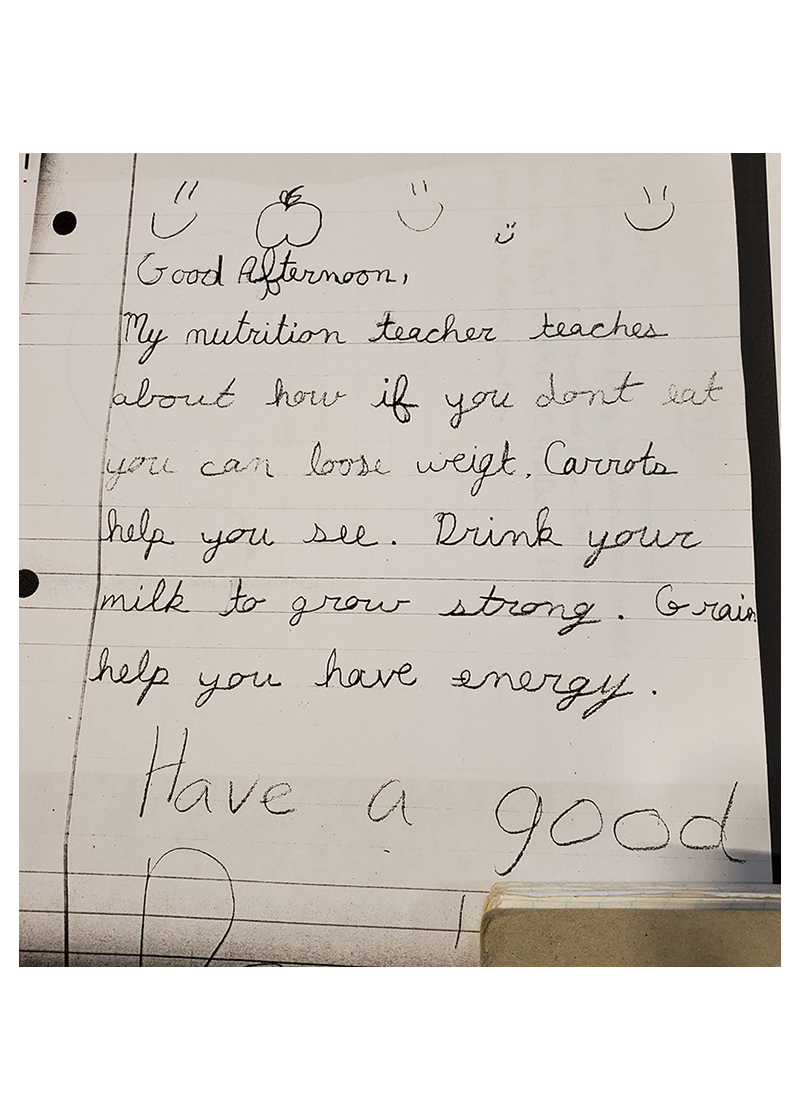 Good Afternoon,
My nutrition teacher teaches
about how if you dont eat
you can loose weigt. Carrots
help you see. Drink your
milk to grow strong. Grain
help you have energy.
Have a good